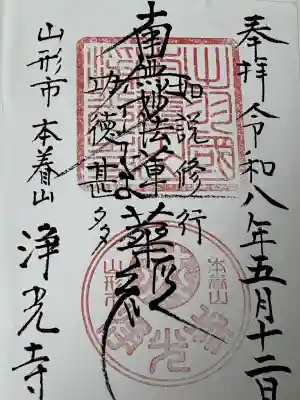 奉拝 令和八年五月十二日
如説修行
南無妙法蓮華経
功徳甚多
山形市 本着山 浄光寺
本着山
山形市